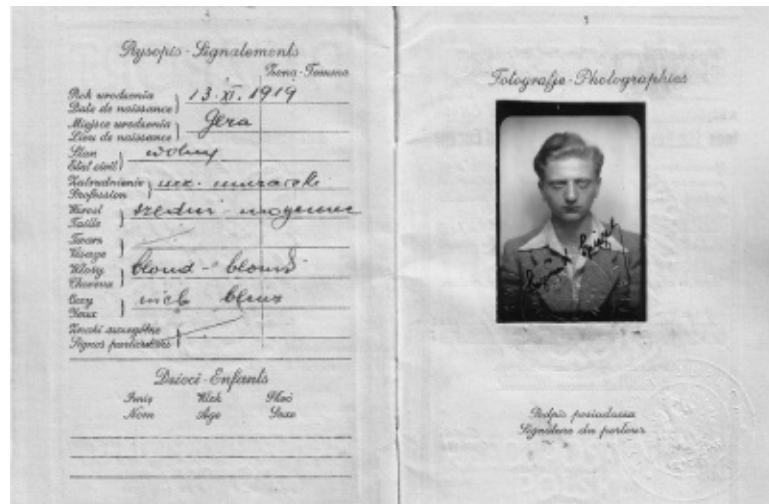 4
Rysopis - Signalements
Żona - Femme
Rok urodzenia
Date de naissance
13. XI. 1919
Miejsce urodzenia
Lieu de naissance
Gera
Stan
Etat civil
wolny
Zatrudnienie
Profession
Wzrost
Taille
średni - moyenne
Twarz
Visage
Włosy
Cheveux
blond - blond
Oczy
Yeux
nieb bleux
Znaki szczególne
Signes particuliers
Dzieci - Enfants
Imię Wiek Płeć
Nom Age Sexe
5
Fotografje - Photographies
Podpis posiadacza
Signature du porteur